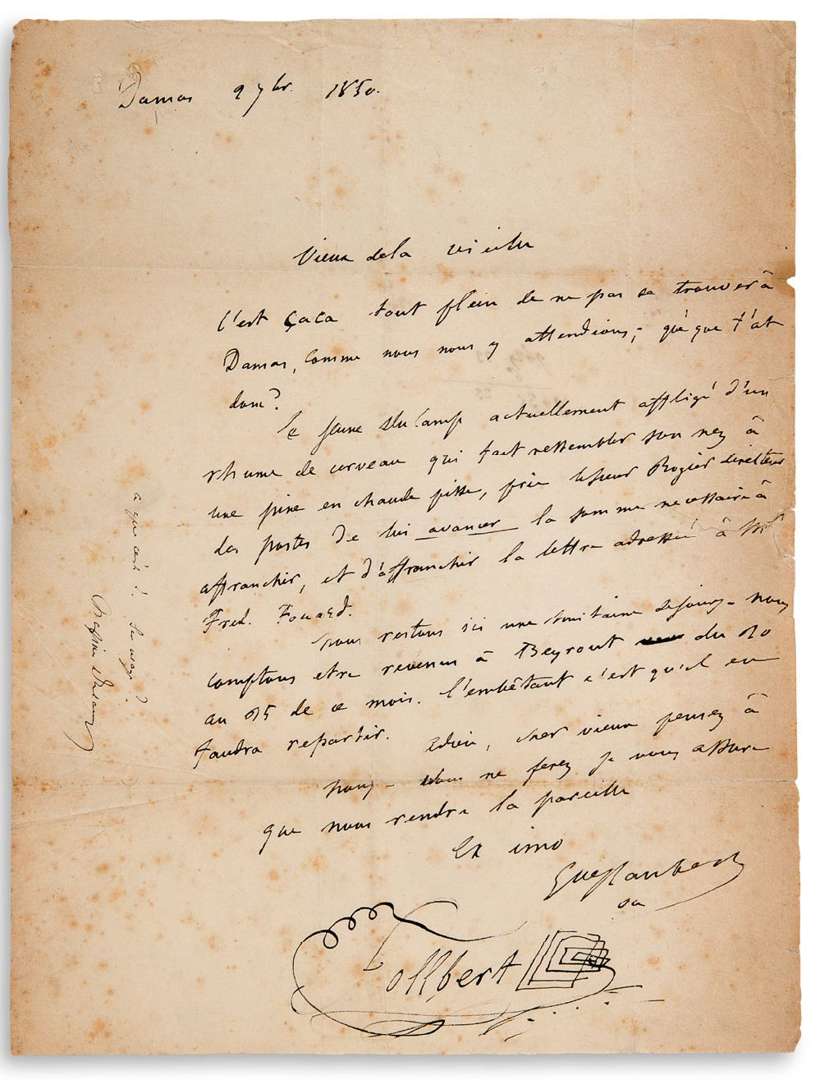 Damas 9 7br. 1850.
Vieux de la vieille
C'est çaca tout plein de ne pas se trouver à
Damas, comme nous nous y attendions; qué que t'as
donc?
Le jeune Du Camp actuellement affligé d'un
rhume de cerveau qui fait ressembler son nez à
une pine en chaude pisse, prie le sieur Rogier directeur
des postes de lui avancer la somme nécessaire à
affranchir, et d'affranchir la lettre adressée à Mr
Fred. Fouard.
nous restons ici une huitaine de jours - nous
comptons etre revenus à Beyrout du 20
au 25 de ce mois. l'embêtant c'est qu'il en
faudra repartir. Adieu, cher vieux pensez à
nous - vous ne ferez je vous assure
que nous rendre la pareille
Ex imo
Gve Flaubert
ou
Follbert
a que